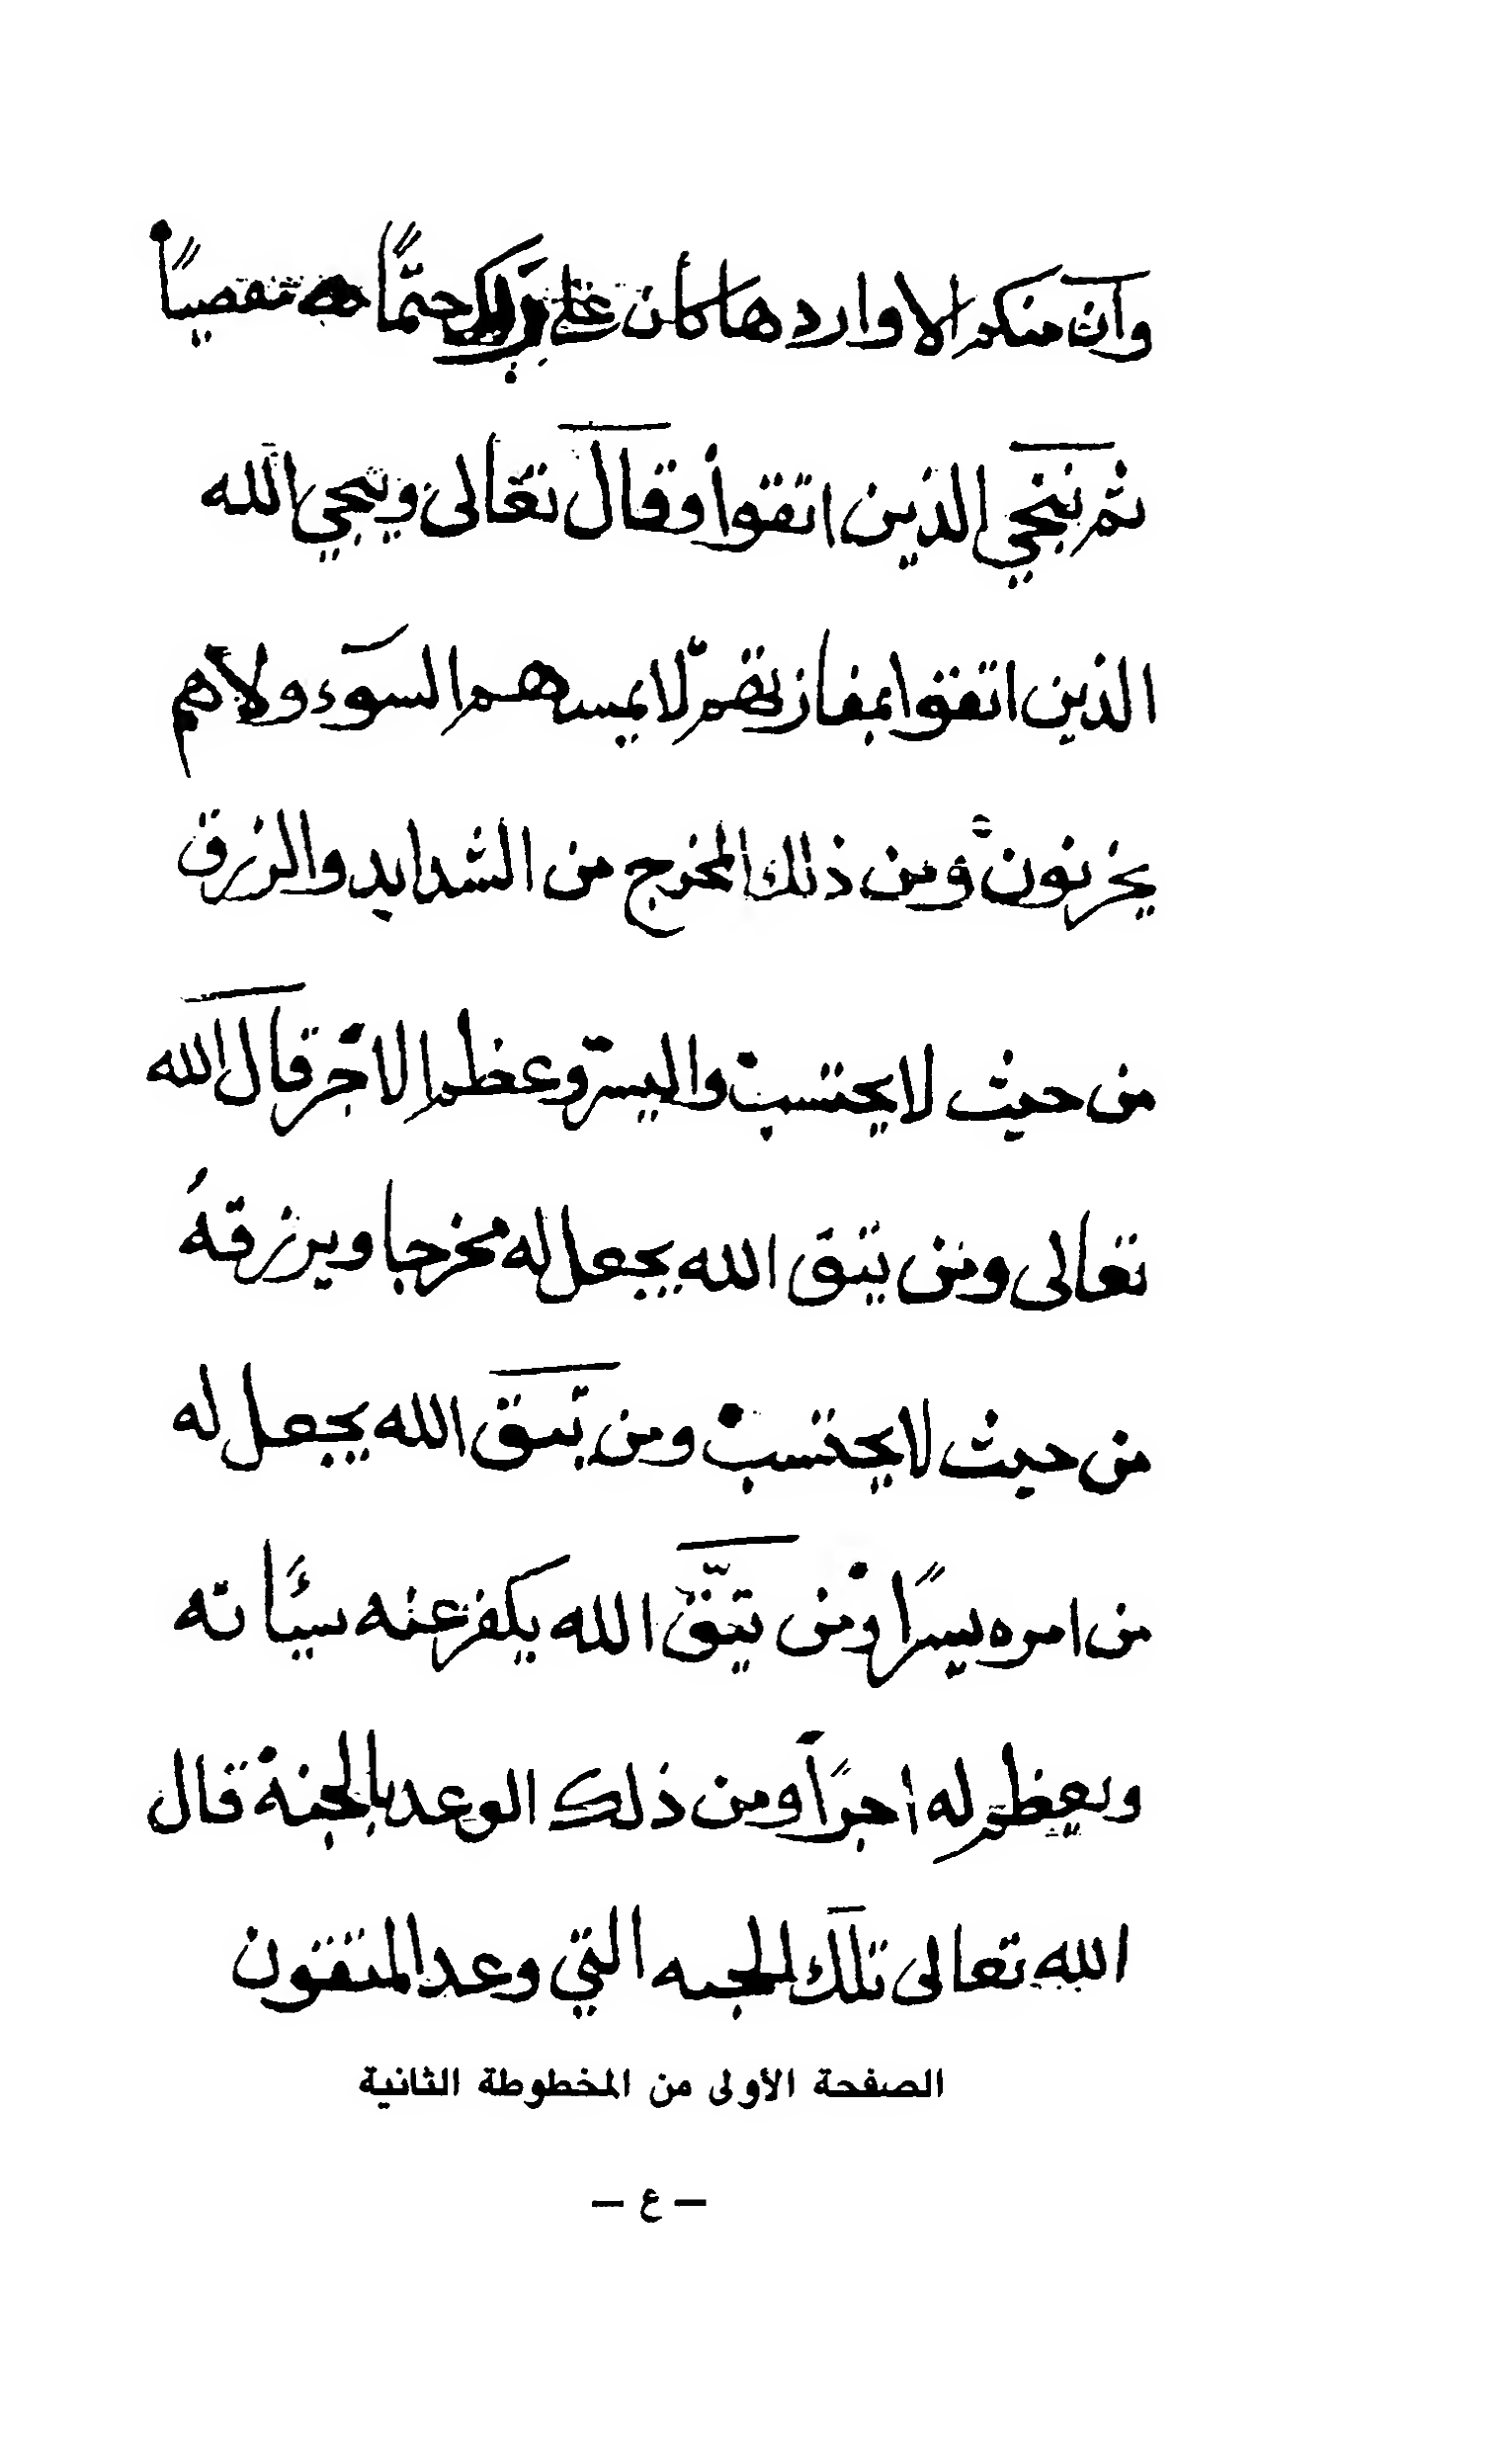 وان منكم الا واردها كان على ربك حتماً مقضياً
ثم ننجي الذين اتقوا وقال تعالى وينجي الله
الذين اتقوا بمفازتهم لا يمسهم السوء ولا هم
يحزنون ومن ذلك المخرج من الشدايد والرزق
من حيث لا يحتسب واليسر وعظم الاجر قال الله
تعالى ومن يتق الله يجعل له مخرجا ويرزقهُ
من حيث لا يحتسب ومن يتق الله يجعل له
من امره يسراً ومن يتق الله يكفر عنه سيئاته
ويعظم له اجراً ومن ذلك الوعد بالجنة قال
الله تعالى تلك الجنه التي وعد المتقون
الصفحة الأولى من المخطوطة الثانية
– ع –